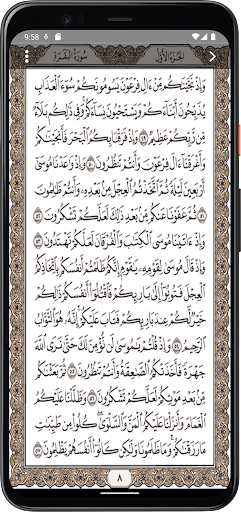 9:58
الجزء الأول
سورة البقرة
وَإِذْ نَجَّيْنَٰكُم مِّنْ ءَالِ فِرْعَوْنَ يَسُومُونَكُمْ سُوٓءَ ٱلْعَذَابِ
يُذَبِّحُونَ أَبْنَآءَكُمْ وَيَسْتَحْيُونَ نِسَآءَكُمْ وَفِى ذَٰلِكُم بَلَآءٌ
مِّن رَّبِّكُمْ عَظِيمٌ ٤٩ وَإِذْ فَرَقْنَا بِكُمُ ٱلْبَحْرَ فَأَنجَيْنَٰكُمْ
وَأَغْرَقْنَآ ءَالَ فِرْعَوْنَ وَأَنتُمْ تَنظُرُونَ ٥٠ وَإِذْ وَٰعَدْنَا مُوسَىٰٓ
أَرْبَعِينَ لَيْلَةً ثُمَّ ٱتَّخَذْتُمُ ٱلْعِجْلَ مِنۢ بَعْدِهِۦ وَأَنتُمْ ظَٰلِمُونَ
٥١ ثُمَّ عَفَوْنَا عَنكُم مِّنۢ بَعْدِ ذَٰلِكَ لَعَلَّكُمْ تَشْكُرُونَ ٥٢
وَإِذْ ءَاتَيْنَا مُوسَى ٱلْكِتَٰبَ وَٱلْفُرْقَانَ لَعَلَّكُمْ تَهْتَدُونَ ٥٣
وَإِذْ قَالَ مُوسَىٰ لِقَوْمِهِۦ يَٰقَوْمِ إِنَّكُمْ ظَلَمْتُمْ أَنفُسَكُم بِٱتِّخَاذِكُمُ
ٱلْعِجْلَ فَتُوبُوٓا۟ إِلَىٰ بَارِئِكُمْ فَٱقْتُلُوٓا۟ أَنفُسَكُمْ ذَٰلِكُمْ
خَيْرٌ لَّكُمْ عِندَ بَارِئِكُمْ فَتَابَ عَلَيْكُمْ إِنَّهُۥ هُوَ ٱلتَّوَّابُ
ٱلرَّحِيمُ ٥٤ وَإِذْ قُلْتُمْ يَٰمُوسَىٰ لَن نُّؤْمِنَ لَكَ حَتَّىٰ نَرَى ٱللَّهَ
جَهْرَةً فَأَخَذَتْكُمُ ٱلصَّٰعِقَةُ وَأَنتُمْ تَنظُرُونَ ٥٥ ثُمَّ بَعَثْنَٰكُم
مِّنۢ بَعْدِ مَوْتِكُمْ لَعَلَّكُمْ تَشْكُرُونَ ٥٦ وَظَلَّلْنَا عَلَيْكُمُ
ٱلْغَمَامَ وَأَنزَلْنَا عَلَيْكُمُ ٱلْمَنَّ وَٱلسَّلْوَىٰ كُلُوا۟ مِن طَيِّبَٰتِ
مَا رَزَقْنَٰكُمْ وَمَا ظَلَمُونَا وَلَٰكِن كَانُوٓا۟ أَنفُسَهُمْ يَظْلِمُونَ ٥٧
٨